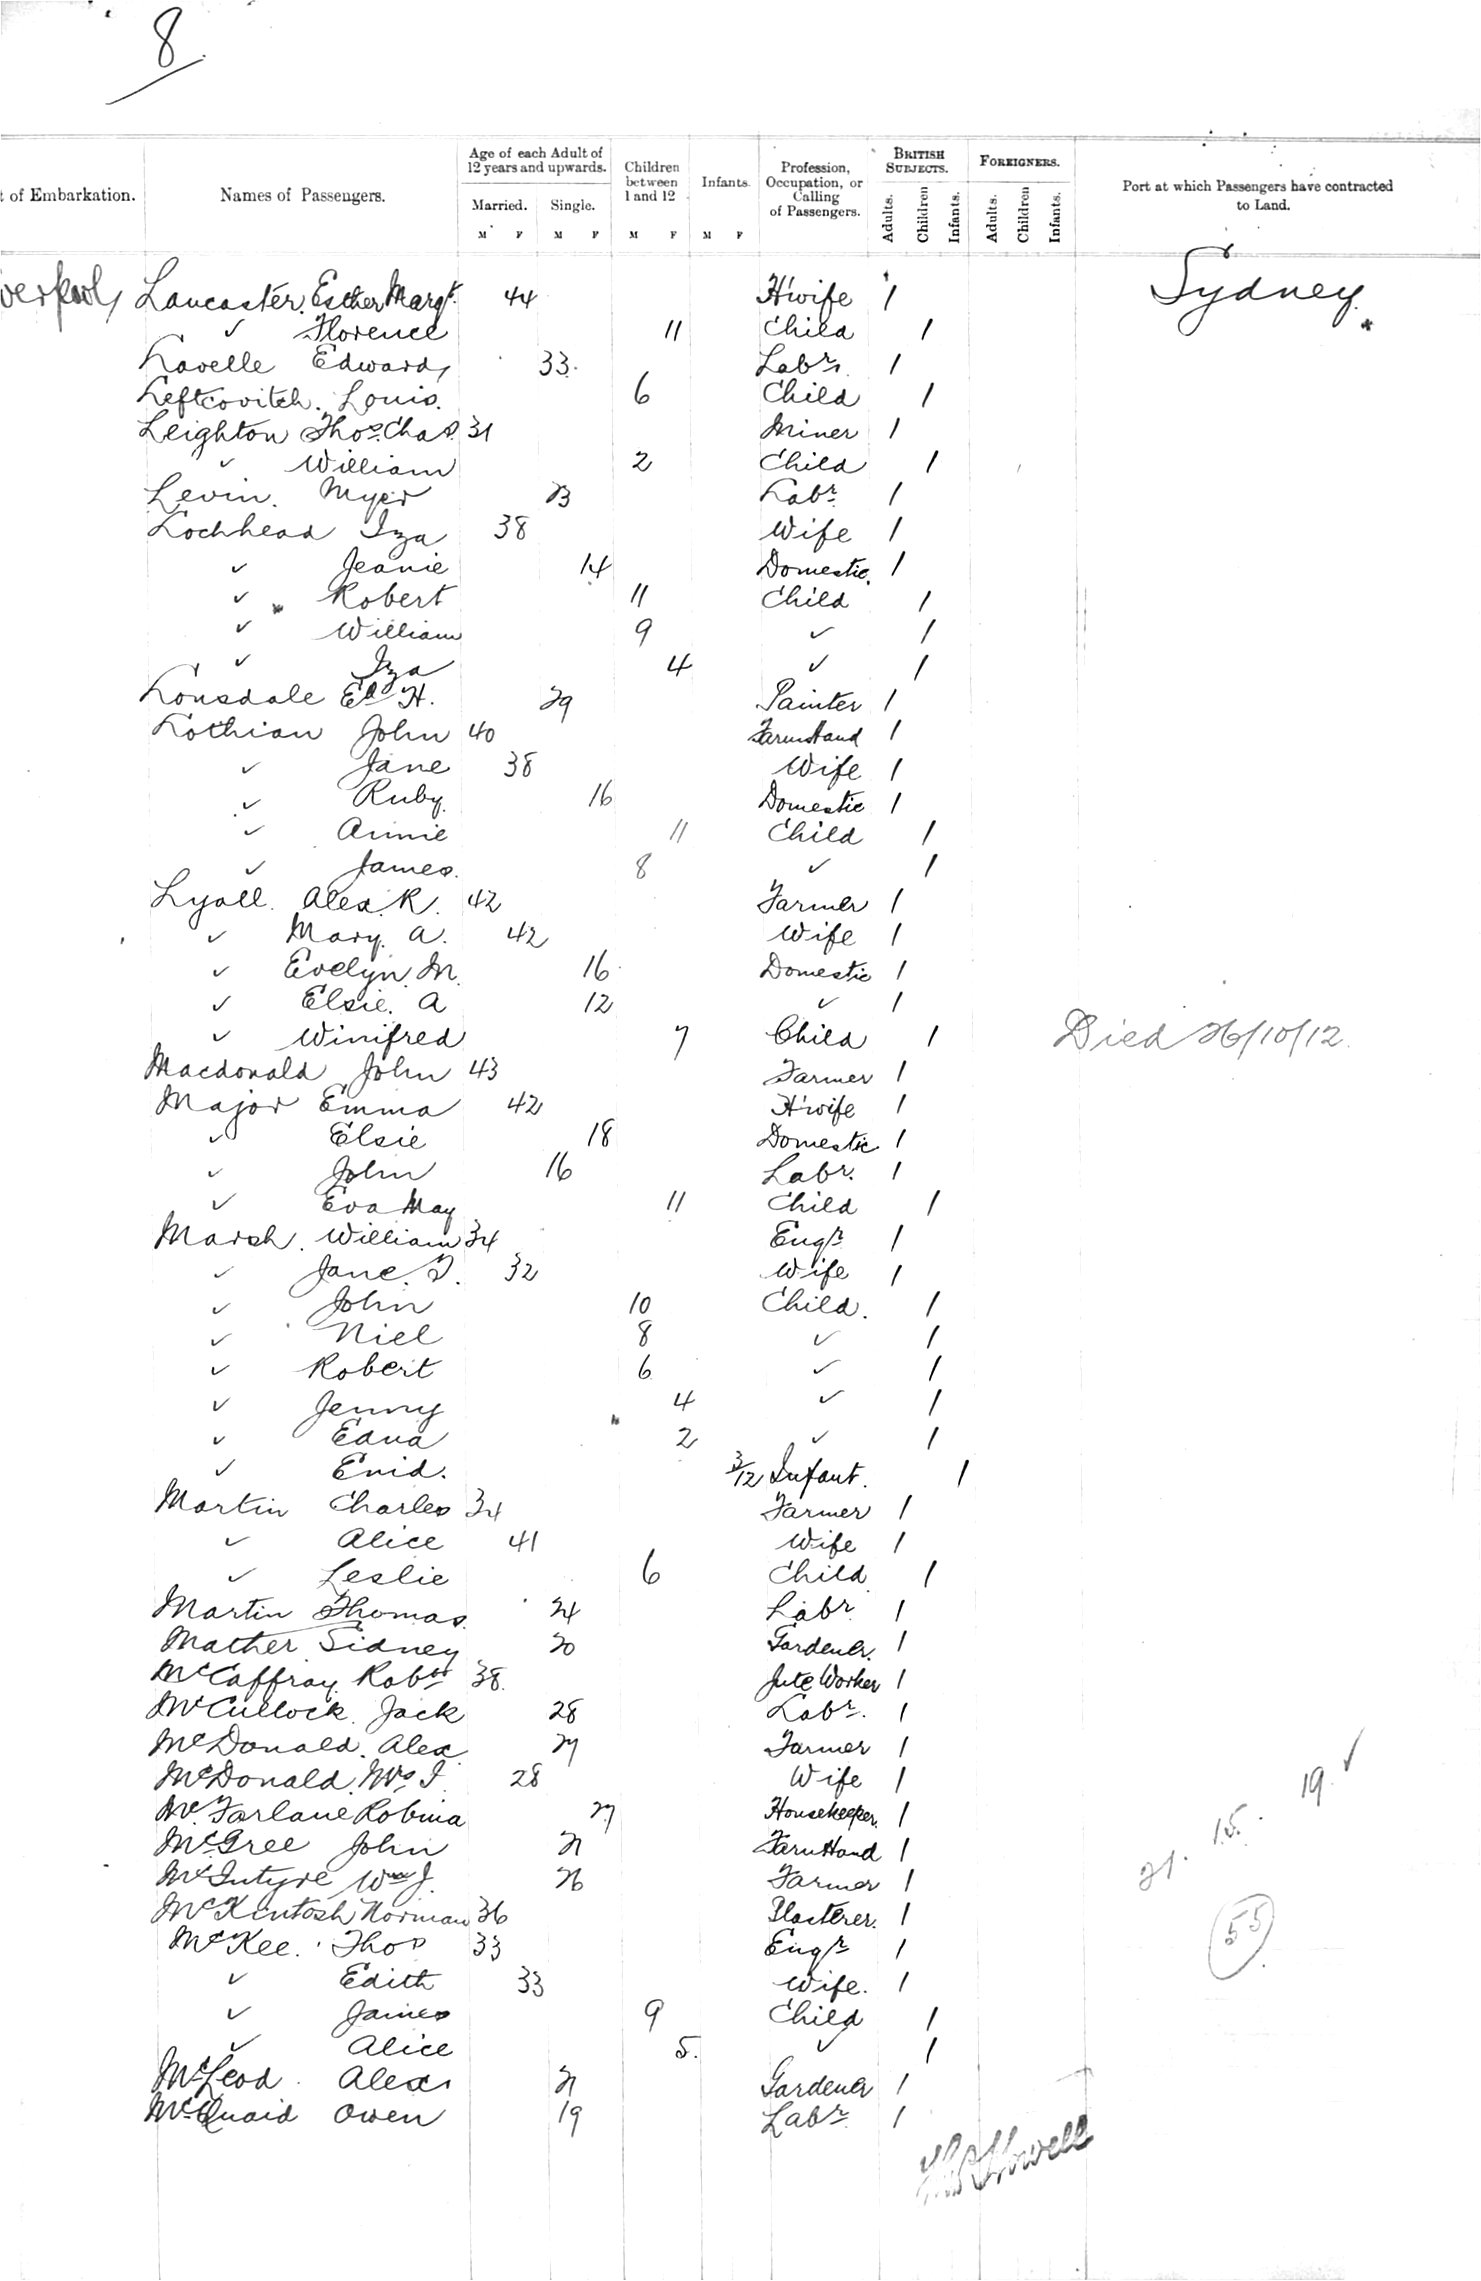 8
Age of each Adult of 12 years and upwards.
Children between 1 and 12
Infants.
Profession, Occupation, or Calling of Passengers.
BRITISH SUBJECTS.
FOREIGNERS.
Port at which Passengers have contracted to Land.
t of Embarkation.
Names of Passengers.
Married. Single.
Adults. Children Infants. Adults. Children Infants.
M F M F M F M F
verpool, Lancaster. Esther Margt. 44 H'wife 1 Sydney.
✓ Florence 11 Child 1
Lavelle Edward, 33. Labr. 1
Leftcovitch. Louis. 6 Child 1
Leighton Thos. Chas. 31 Miner 1
✓ William 2 Child 1
Levin. Myer 23 Labr. 1
Lochhead Iza 38 Wife 1
✓ Jeanie 14 Domestic. 1
✓ Robert 11 Child 1
✓ William 9 ✓ 1
✓ Iza 4 ✓ 1
Lonsdale Ed H. 29 Painter 1
Lothian John 40 Farm Hand 1
✓ Jane 38 Wife 1
✓ Ruby. 16 Domestic 1
✓ Annie 11 Child 1
✓ James. 8 ✓ 1
Lyall. Alex. R. 42 Farmer 1
✓ Mary. A. 42 Wife 1
✓ Evelyn. M. 16 Domestic 1
✓ Elsie. A 12 ✓ 1
✓ Winifred 7 Child 1 Died 26/10/12.
Macdonald John 43 Farmer 1
Major Emma 42 H'wife 1
✓ Elsie 18 Domestic. 1
✓ John 16 Labr. 1
✓ Eva May 11 Child 1
Marsh. William 34 Engr. 1
✓ Jane. T. 32 Wife 1
✓ John 10 Child. 1
✓ Niel 8 ✓ 1
✓ Robert 6 ✓ 1
✓ Jenny 4 ✓ 1
✓ Edna 2 ✓ 1
✓ Enid. 3/12 Infant. 1
Martin Charles 34 Farmer 1
✓ Alice 41 Wife 1
✓ Leslie 6 Child 1
Martin Thomas. 24 Labr. 1
Mather Sidney 20 Gardener. 1
McCaffray Robt. 38. Jute Worker 1
McCullock. Jack 28 Labr. 1
McDonald. Alex. 27 Farmer 1
McDonald. Mrs I. 28 Wife 1
McFarlane Robina 27 Housekeeper. 1
McGree John 21 Farm Hand 1
McIntyre Wm J. 26 Farmer 1
McKintosh Norman 36 Plasterer. 1
McKee. Thos 33 Engr 1
✓ Edith 33 Wife. 1
✓ James 9 Child 1
✓ Alice 5. ✓ 1
McLeod. Alex. 21 Gardener 1
McQuaid Owen 19 Labr 1
21. 15. 19. ✓
55
Howell